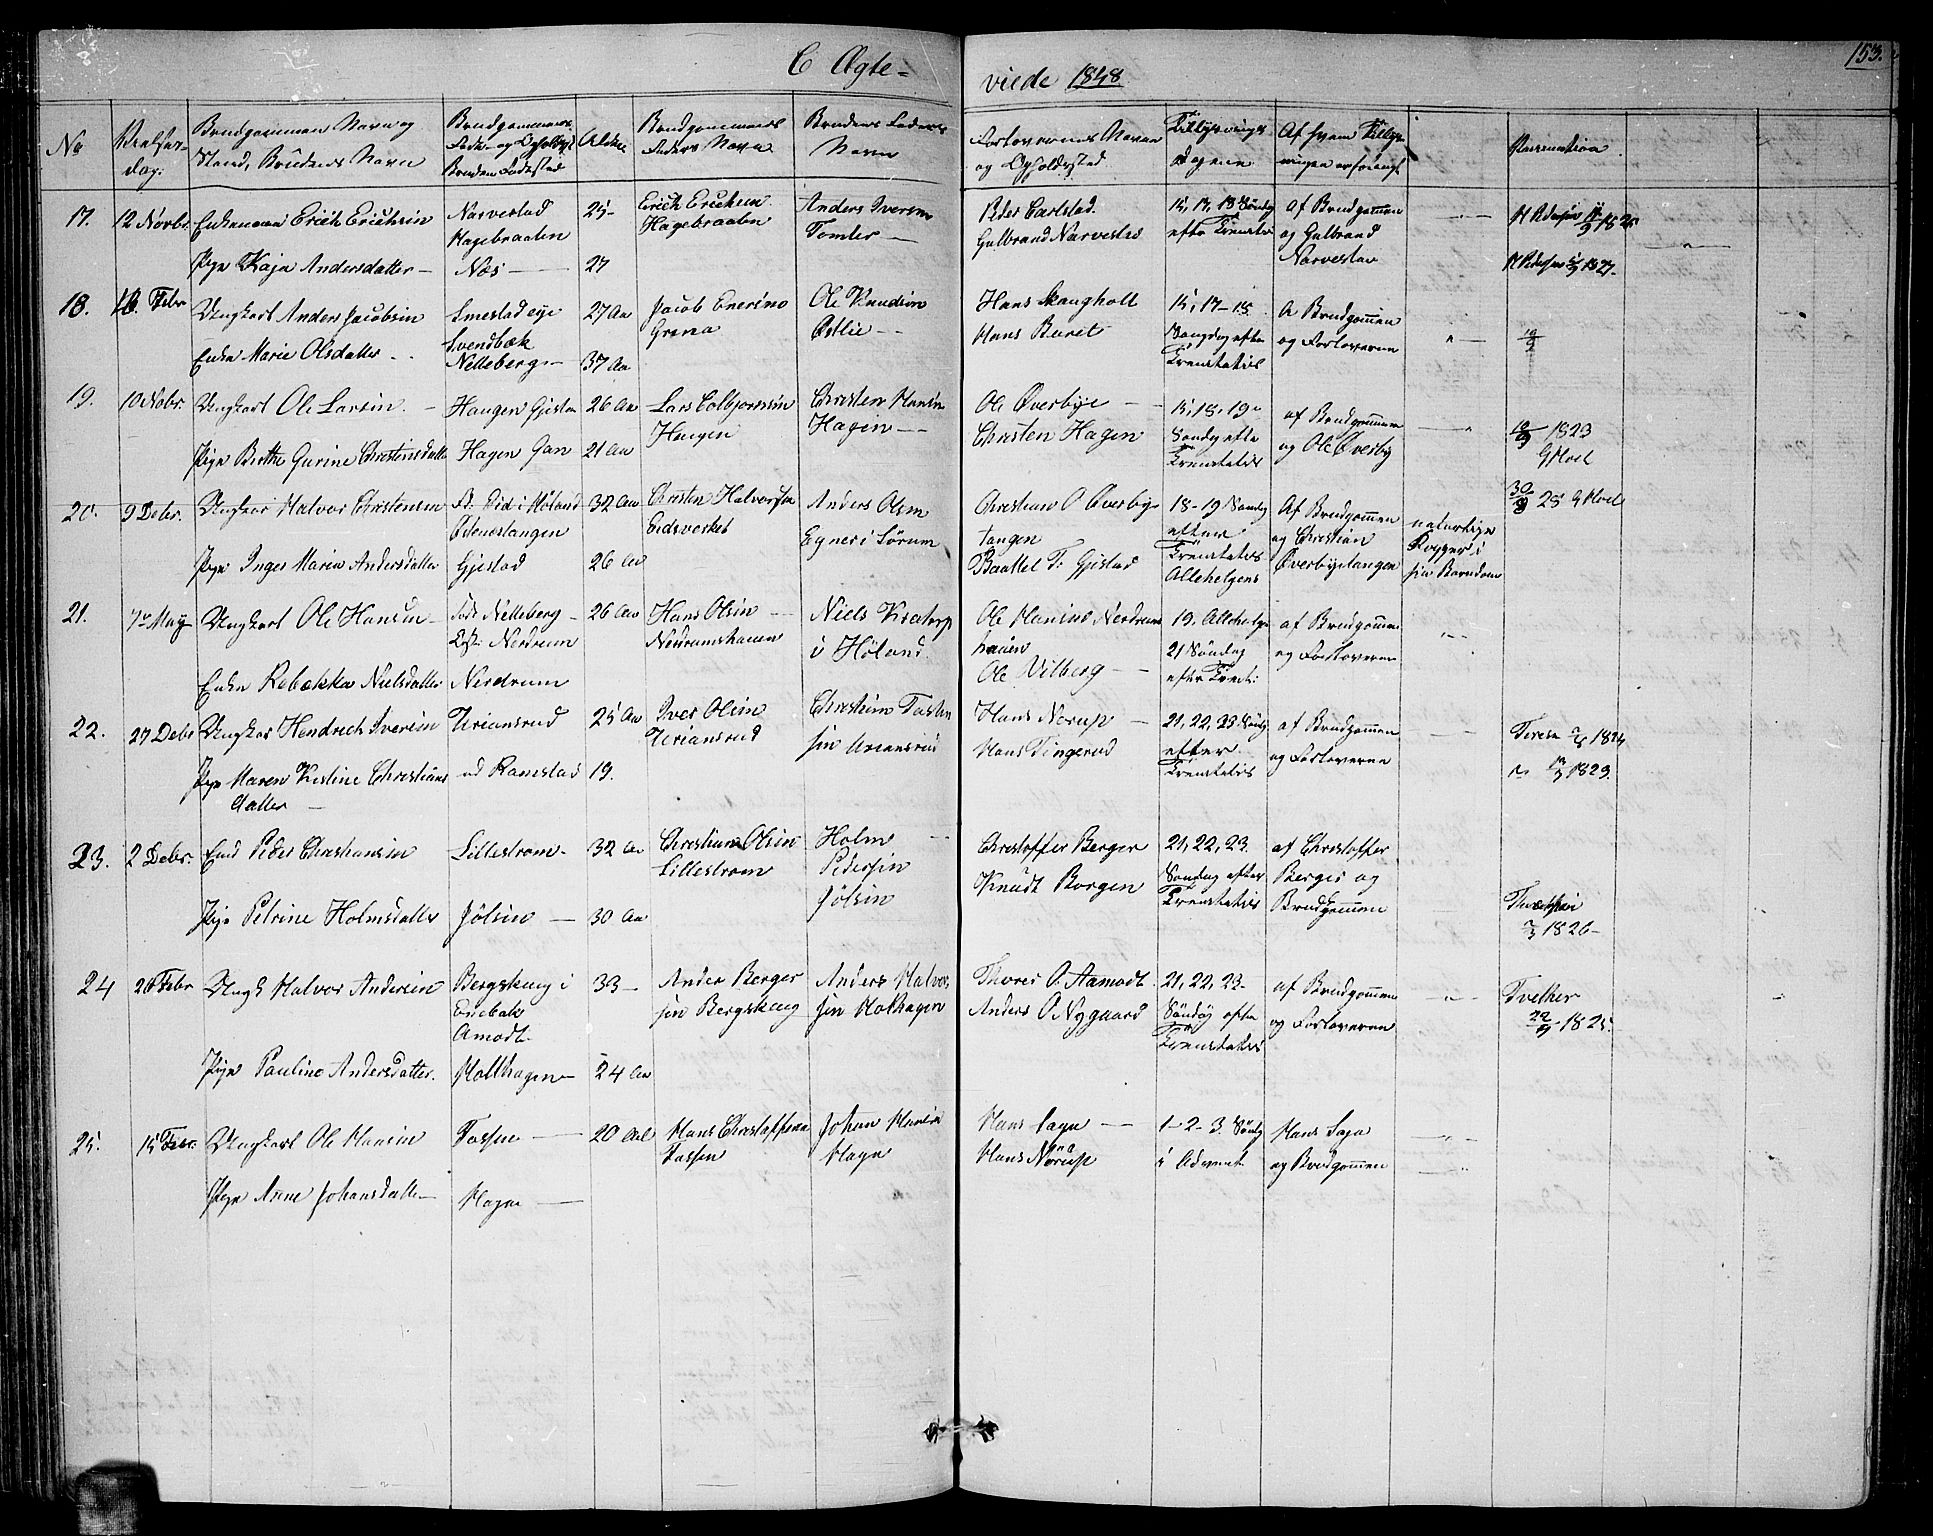 C Ægte-
viede 1848
153.
No
Navn
Brudgommens Navn og
Stand, Brudens Navn
Brudgommens
Føde- og Opholdsst
Brudens Fødested
Alder
Brudgommens
Faders Navn
Brudens Faders
Navn
Forlovernes Navne
og Opholdssted.
Tillysnings
Dagene
Af hvem Tillys-
ningen er forlangt
Vaccination
17. 12 Novbr. Enkemand Erich Erichsen
Narvestad
Hagebraaten
25-
Erich Erichsen
Hagebraaten
Anders Iversen
Tomter
Peder Carlstad.
Gulbrand Narvestad
15, 17, 18 Søndg
efter Trinitatis
Af Brudgommen
og Gulbrand
Narvestad
Pige Kaja Andersdatter - Næs - 27
18. 16. Febr Ungkarl Anders Jacobsen
Smestad eje
Svendbæk
27 Aar
Jacob Enersen
Ole Knudsen
Østlie -
Hans Skangholt
Hans Buret
15, 17-18.
Søndag efter
Trinitatis
A Brudgommen
og Forloverne
Enke Marie Olsdatter
Nelleberg - 37 Aar
19. 10 Novbr. Ungkarl Ole Larsen. - Haugen Gjestad 26 Aar
Lars Colbjørnsen
Haugen
Christen Hansen
Hagen -
Ole Øverbye -
Christen Hagen
15, 18, 19
Søndg efter
Trinitatis
af Brudgommen
og Ole Øverby
1823
G Moel
Pige Berthe Gurine Christensdatter Hagen Gan 21 Aar
20. 9 Debr. Ungkar Halvor Christensen
i Høland
32 Aar
Christen Halvorsen
Eidsverket
Anders Olsen
Egner i Sørum
Christian O Øverbye
tangen
Baattel T. Gjestad
18-19 Søndg
efter
Trinitatis
Allehelgens
Af Brudgommen
og Christian
Øverbyetangen
naturlige
Kopper i
sin Barndom
30/8 25 G Moel
Pige Inger Maria Andersdatter Gjestad 26 Aar
21. 7de May Ungkarl Ole Hansen -
Født Nelleberg -
Nordrum
26 Aar
Hans Olsen
Nordrumshaven
Niels Kratorp
i Høland.
Ole Hansens Nordrums
hauen
Ole Vilberg -
19, Allehelgn
21 Søndag
efter Trinit:
af Brudgommen
og Forloverne
Enke Rebækka Nielsdatter Nordrum
22. 27 Debr Ungkar Hendrich Iversen Uriansrud 25 Aar
Iver Olsen
Uriansrud
Christian Tosten
sen Uriansrud
Hans Norup -
Hans Tingerud
21, 22, 23 Søndg
efter
Trinitatis
af Brudgommen
og Forloverne
1824
1829.
Pige Maren Kirstine Christians
datter -
Ramstad 19.
23. 2 Debr. Peder Christiansen Lillestrøm - 32 Aar
Christian Olsen
Lillestrøm
Holm
Pedersen
Jølsen
Christoffer Berger
Knudt Borgen
21, 22, 23.
Søndag efter
Trinitatis
af Christoffer
Berger og
Brudgommen
Pige Petrine Holmsdatter Jølsen - 30 Aar
1820-
24 26 Febr Ungk Halvor Andersen
Bergskaug i
Enebak
Amodt.
33 -
Anders Berger
sen Bergskaug
Anders Halvor
sen Holthagen
Thorer O. Aamodt.
Anders O Nygaard
21, 22, 23-
Søndag efter
Trinitatis
af Brudgommen
og Forloverne
Tvelter
22/9 1825.
Pige Pauline Andersdatter. Holthagen - 24 Aar
25. 15 Febr. Ungkarl Ole Hansen Fossen - 20 Aar
Hans Christoffersen
Fossen
Johan Hansen
Hagn
Hans Sagn -
Hans Norup
1-2-3. Søndg
i Advent
Hans Sagn
og Brudgommen
Pige Anne Johansdatter - Hagn -